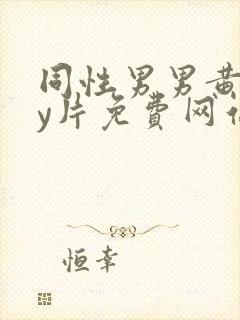 同性男男黄
y片免费网
恒幸